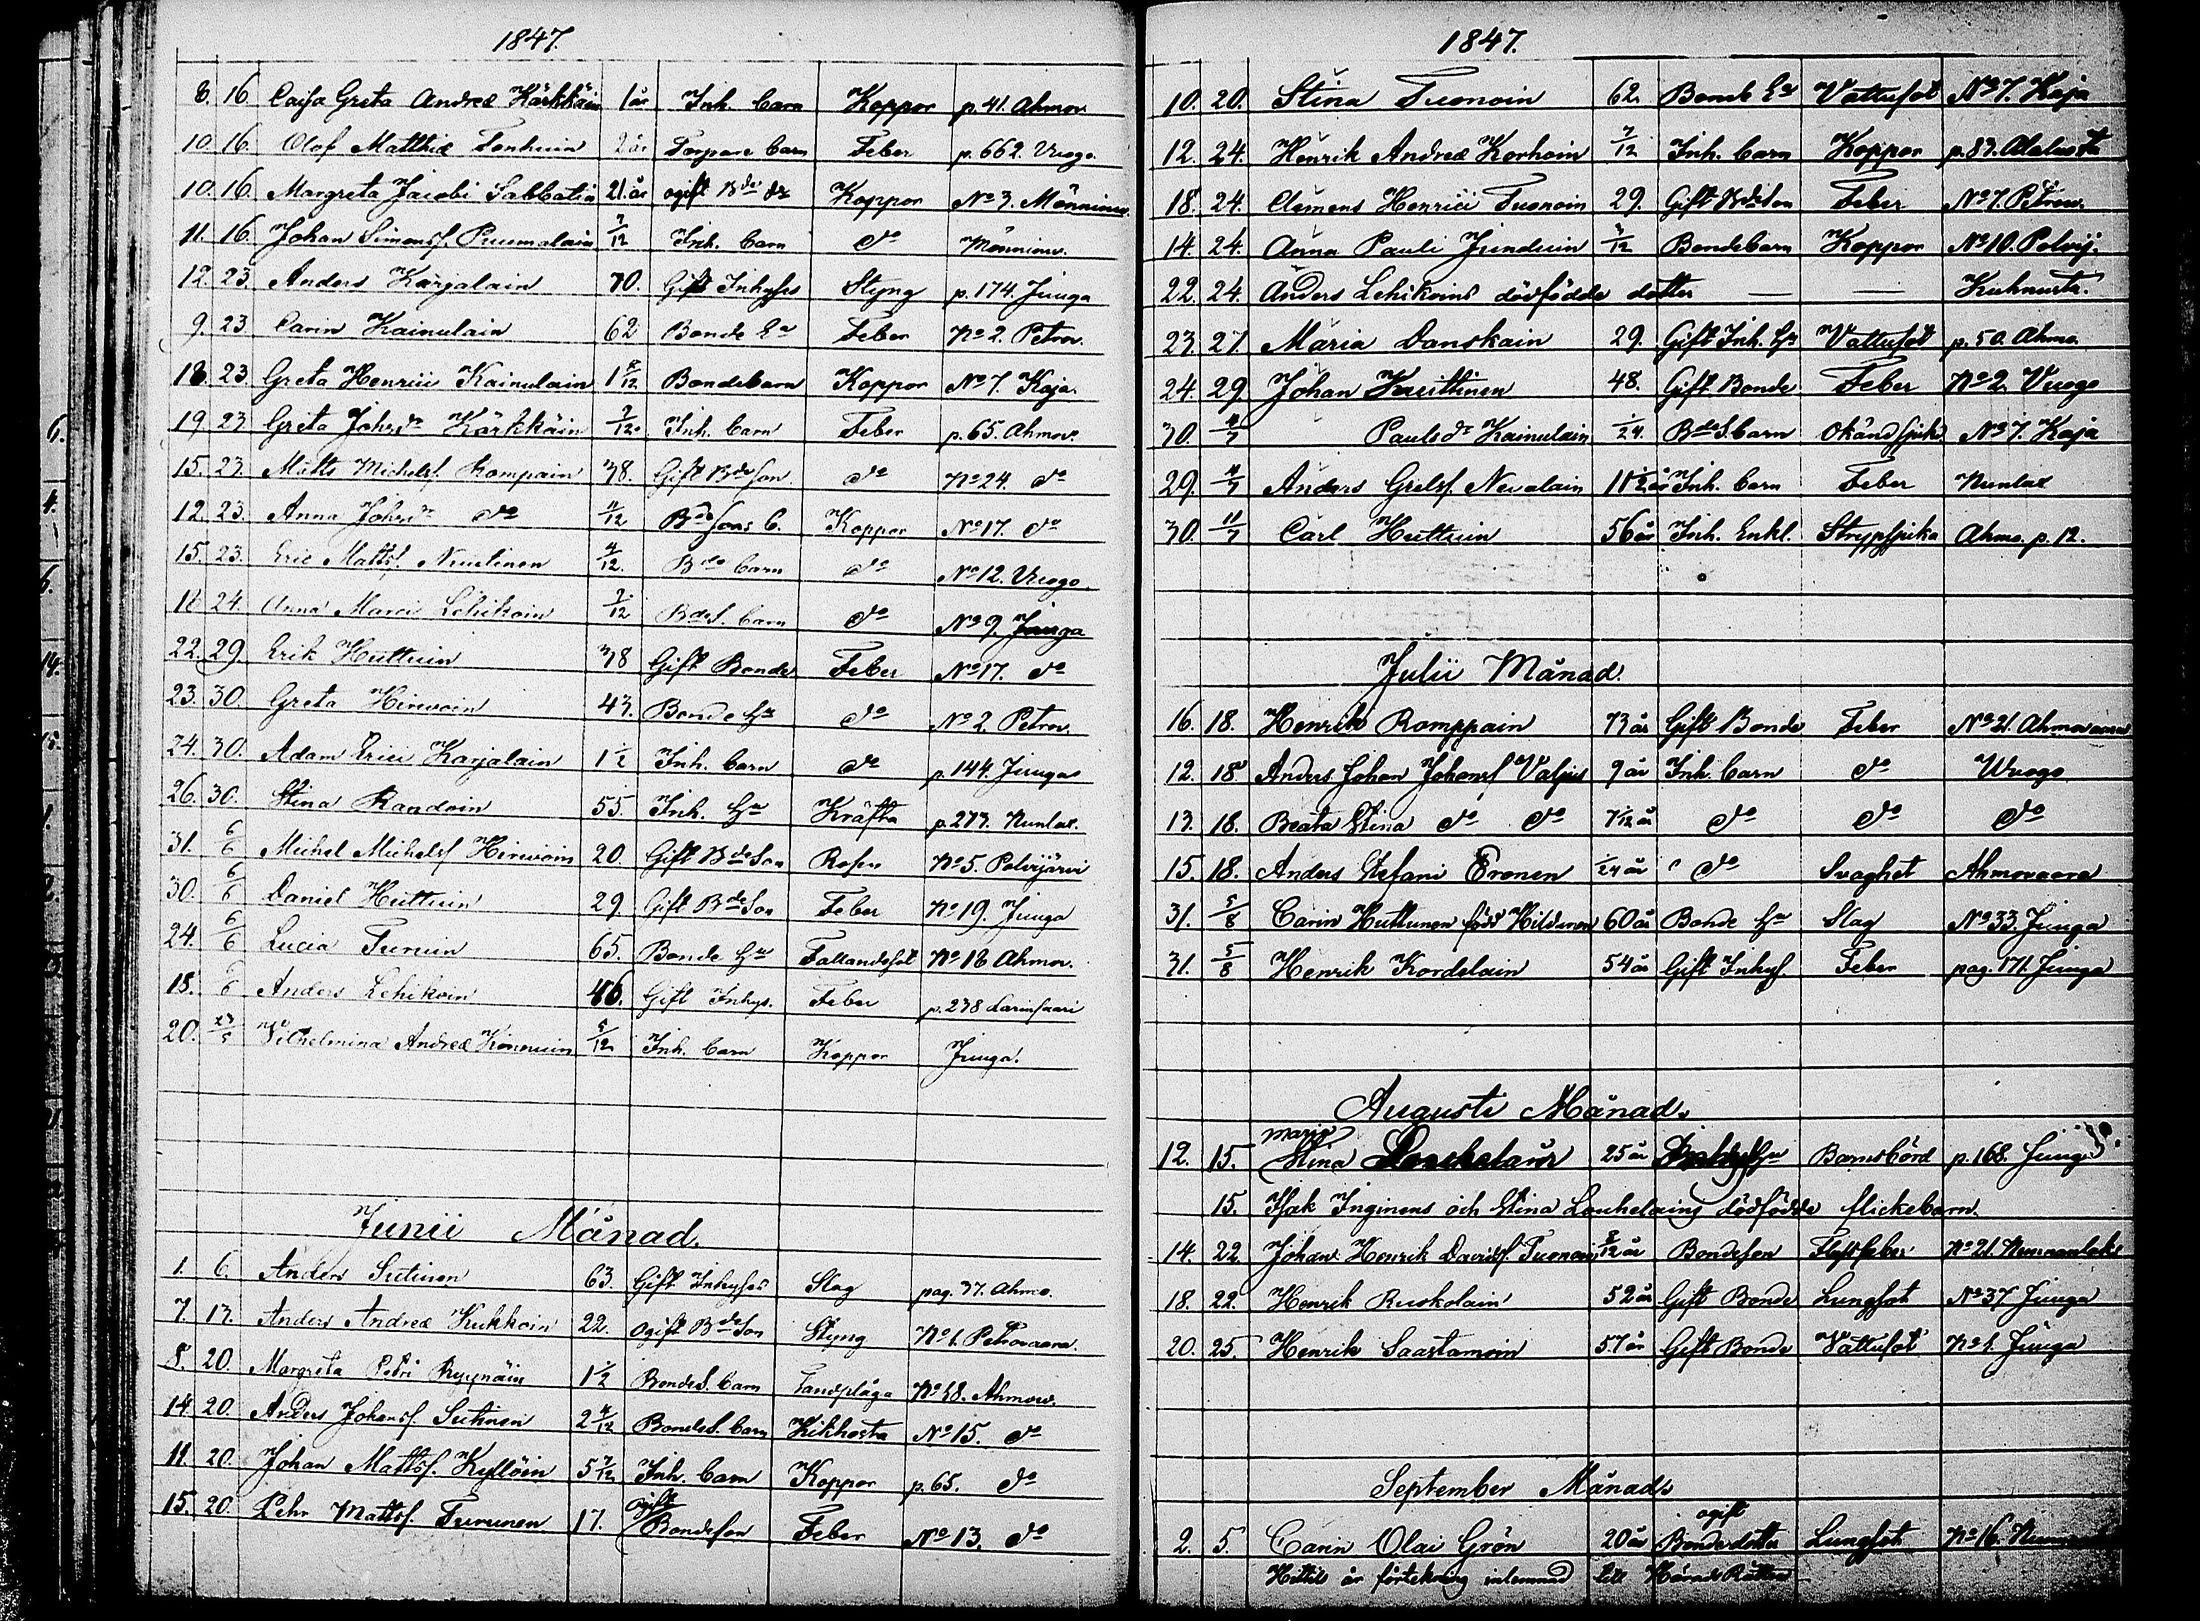 1847.
8. 16. Caisa Greta Andreæ Kärkkäin 1 år Inh. barn Koppor p. 41. Ahmov.
10. 16. Olof Matthiæ Tenhuin 2 år Torpare barn Feber p. 662. Vuogo.
10. 16. Margreta Jacobi Sabbatin 21. år ogift Bde dr Koppor No 3. Mönninv.
11. 16. Johan Simonsf. Puumalain 7/12 Inh. barn do Mönninv.
12. 23. Anders Karjalain 70. Gift Inhyses Styng p. 174. Juuga
9. 23. Carin Kainulain 62 Bonde Ea Feber No 2. Petrov.
18. 23. Greta Henrici Kainulain 1 8/12 Bondebarn Koppor No 7. Kaja.
19. 23. Greta Johsdr Kärkkäin 7/12. Inh. barn Feber p. 65. Ahmov.
15. 23. Matts Michelsf. Rompain 38. Gift Bde son do No 24. do
12. 23. Anna Johsdr do 11/12 Bde sons b. Koppor No 17. do
15. 23. Eric Mattsf. Nuutinen 4/12. Bde barn do No 12. Vuogo.
18. 24. Anna Marci Lehikoin 7/12 BdeS. barn do No 9. Juuga
22. 29. Erik Huttuin 38 Gift Bonde Feber No 17. do
23. 30. Greta Hirvoin 43. Bonde Hu do No 2. Petrov.
24. 30. Adam Erici Karjalain 1 1/2 Inh. barn do p. 144. Juuga
26. 30. Stina Randoin 55. Inh. Hu Kräfta p. 273. Nunlax.
31. 6/6 Michel Michelsf Hirvoin 20. Gift Bde Son Rosen No 5. Polvijärvi
30. 6/6 Daniel Huttuin 29. Gift Bde Son Feber No 19. Juuga
24. 6/6 Lucia Turuin 65. Bonde Hu Fallandsot No 18 Ahmov.
18. 6/6 Anders Lehikoin 46. Gift Inhys. Feber p. 238 Larinsaari
20. 23/5 Vilhelmina Andreæ Konnuin 5/12 Inh. barn Koppor Juuga.
Junii Månad.
1. 6. Anders Sutinen 63. Gift Inhyses Slag pag. 37. Ahmo.
7. 13. Anders Andreæ Kukkoin 22. Ogift Bde Son Styng No 1. Petrovaara.
8. 20. Margreta Petri Ryynäin 1 1/2 BondeS. barn Tandplåga No 38. Ahmov.
14. 20. Anders Johansf. Sutinen 2 4/12 BondeS. barn Kikhosta No 15. do
11. 20. Johan Mattsf. Kyllöin 5 7/12 Inh. barn Koppor p. 65. do
15. 20. Pehr Mattsf. Turunen 17. ogift Bondeson Feber No 13. do
1847.
10. 20. Stina Tuonoin 62. Bonde Ea Vattusot No 7. Kaja
12. 24. Henrik Andreæ Korhoin 7/12 Inh. barn Koppor p. 83. Alalusta
18. 24. Clemens Henrici Tuonoin 29. Gift Bde Son Feber No 7. Petrov.
14. 24. Anna Pauli Junduin 3/12 Bondebarn Koppor No 10. Polvij.
22. 24. Anders Lehikoins dödfödde dotter — — Kuhnusta.
23. 27. Maria Danskain 29. Gift Inh. Hu Vattusot p. 50. Ahmo.
24. 29. Johan Kauttinen 48. Gift Bonde Feber No 2. Vuogo
30. 4/7 Paulsdr Kainulain 1/24. BdeS barn Okänd sjuk. No 7. Kaja
29. 4/7 Anders Grelsf. Nevalain 11 1/2 år Inh. barn Feber Nunlax
30. 11/7 Carl Huttuin 56 år Inh. Enkl. Strypsjuka Ahmo. p. 12.
Julii Månad.
16. 18. Henrik Romppain 73 år Gift Bonde Feber No 21. Ahmovaara
12. 18 Anders Johan Johansf Valjus 9 år Inh. barn do Vuogo
13. 18. Beata Stina do do 7/12 år do do do
15. 18. Anders Stefani Eronen 1/24 år do Svaghet Ahmovaara
31. 5/8 Carin Huttunen född Hildunen 60 år Bonde Hu Slag No 33. Juuga
31. 5/8 Henrik Kordelain 54 år Gift Inhys. Feber pag. 171. Juuga
Augusti Månad.
12. 15. Maria Stina Louhelain 25 år Inhyses Hu Barnsbörd p. 168. Juuga
15. Isak Inginens och Stina Louhelains dödfödde flickebarn.
14. 22. Johan Henrik Davidsf. Tuonoin 8/12 år Bondeson Flussfeber No 21. Nunnanlaks
18. 22. Henrik Ruokolain 52 år Gift Bonde Lungsot No 37 Juuga
20. 25. Henrik Saastamoin 57 år Gift Bonde Vattusot No 1. Juuga
September Månad.
2. 5. Carin Olai Grön 20 år ogift Bonde dotter Lungsot No 16.
Hittils är förtekning inlemnad till Härads Rätten